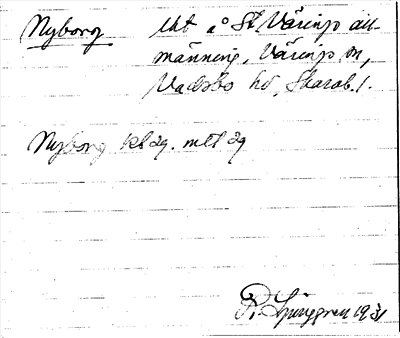 Nyborg lht å St. Väringe all-
männing, Väringe sn,
Vadsbo hd, Skarab. l.
Nyborg kl äg. mlt äg
R. Ljunggren 1931